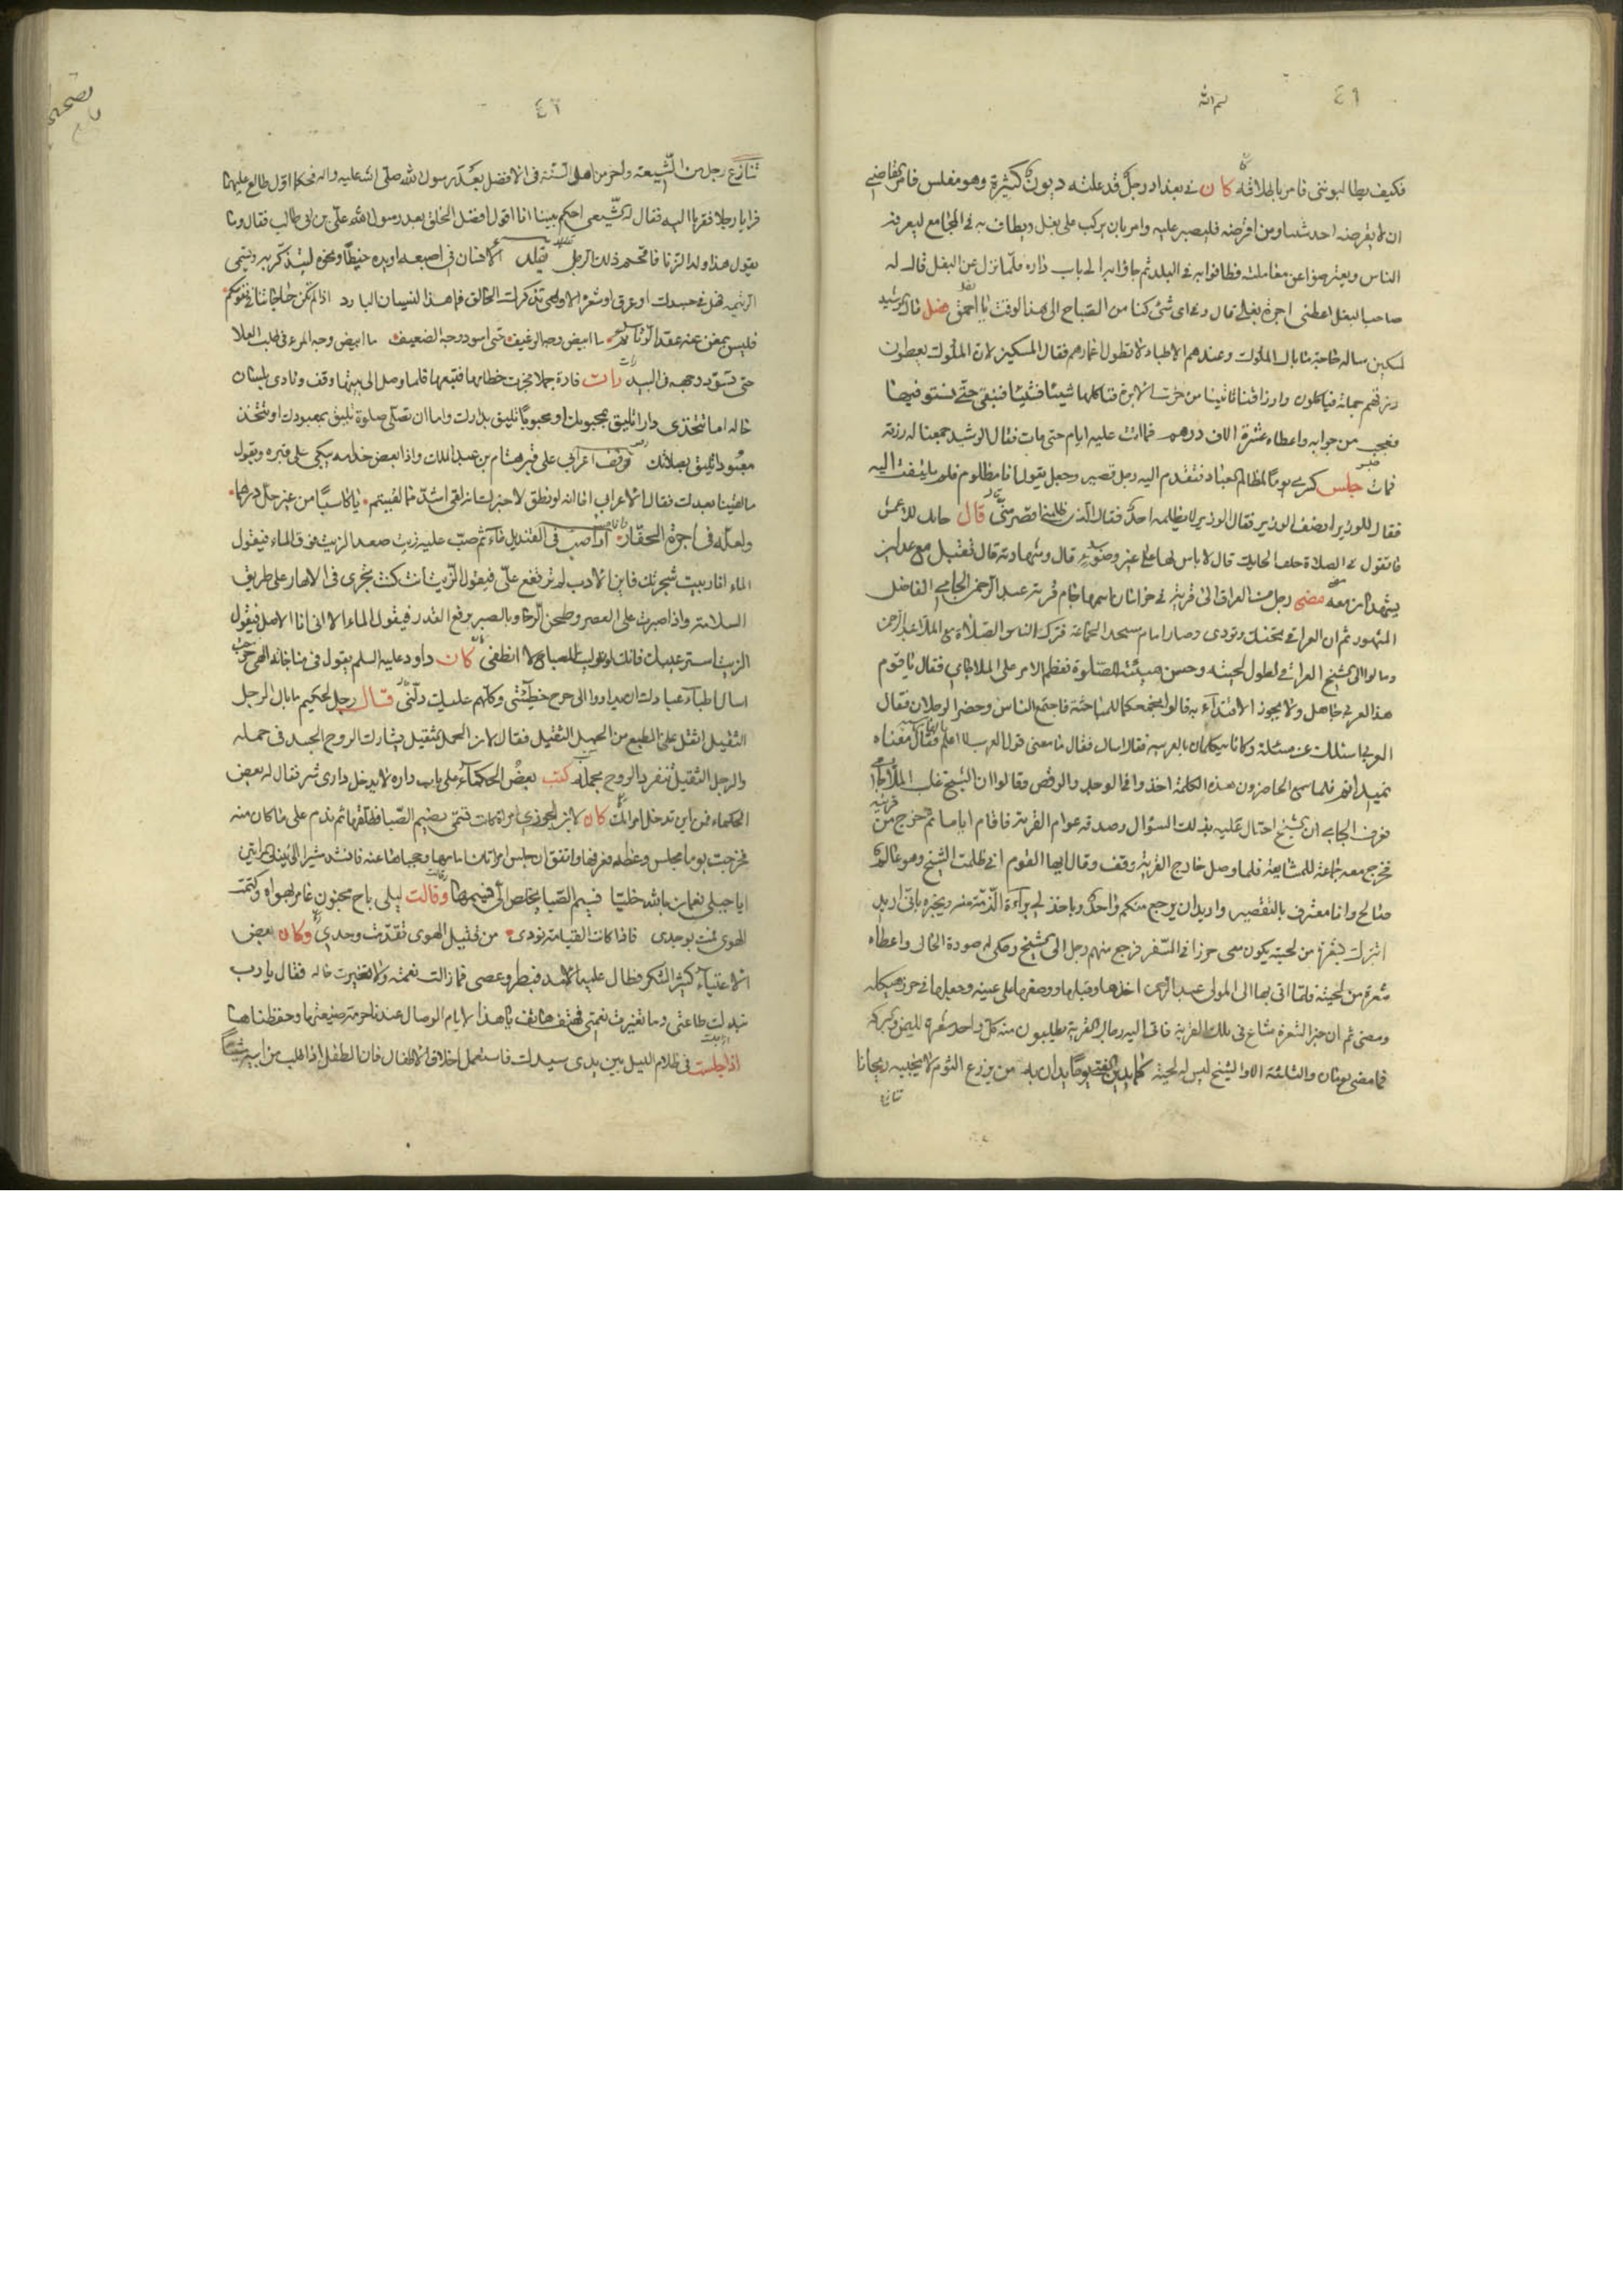 ٤٦
بسم الله
فكيف يطالبونني فامر باطلاقه كان في بغداد رجل قد علته ديون كثيرة وهو مفلس فامر القاضي
ان لا يقرضه احد شيئا ومن اقرضه فليصبر عليه وامر بان يركب على بغل ويطاف به في المجامع ليعرفه
الناس ويعترضوا عن معاملته فطافوا به في البلد ثم جاؤا به الى باب داره فلما نزل عن البغل قال له
صاحب البغل اعطني اجرة بغلي قال وفي اي شئ كنا من الصباح الى هذا الوقت يا احمق قال رشيد
لمسكين ساله حاجة ما بال الملوك وعندهم الاطباء لا تطول اعمارهم فقال المسكين لان الملوك يعطون
رزقهم جملة فياكلون وارزاقنا تاتينا من خرت الابرة فناكلها شيئا فشيئا فنبقى حتى نستوفيها
فعجب من جوابه واعطاه عشرة الاف درهم فما اتت عليه ايام حتى مات فقال الرشيد جمعنا له رزقه
فمات جلس كسرى يوما لمظالم العباد فتقدم اليه رجل قصير وجعل يقول انا مظلوم فلم يلتفت اليه
فقال للوزير انصف الوزير فقال الوزير لا يظلمه احد فقال الذي ظلمني اقصر مني قال حائك للاعمش
ما تقول في الصلاة خلف الحائك قال لا باس بها على غير وضوء قال وشهادته قال تقبل مع عدلين
يشهدان معه مضى رجل من العراق الى قرية في خراسان اسمها جام قرية عبد الرحمن الجامي الفاضل
المشهور ثم ان العراقي تحنك وتردى وصار امام مسجد الجماعة فترك الناس الصلاة مع الملا عبد الرحمن
ومالوا الى الشيخ العراقي لطول لحيته وحسن هيئته للصلوة فعظم الامر على الملا الجامي فقال يا قوم
هذا العربي جاهل ولا يجوز الاقتداء به قالوا نجمعكما للمباحثة فاجتمع الناس وحضر الرجلان فقال
العربي اسئلك عن مسئلة وكانا يتكلمان بالعربية فقال اسال فقال ما معنى قول العرب لا اعلم فقال معناه
نميدانم فلما سمع الحاضرون هذه الكلمة اخذوا في الوجد والرقص وقالوا ان الشيخ غلب الملا
فعرف الجامي ان الشيخ احتال عليه بذلك السؤال وصدقه عوام القرية فاقام اياما ثم خرج من
فخرج معه جماعة للمشايعة فلما وصل خارج القرية وقف وقال ايها القوم اني ظلمت الشيخ وهو عالم
صالح وانا معترف بالتقصير واريد ان يرجع منكم واحد وياخذ لي براءة الذمة منه ويخبره باني اريد
اتبرك بشعرة من لحيته يكون معي حرزا في السفر فرجع منهم رجل الى الشيخ وحكى له صورة الحال واعطاه
شعرة من لحيته فلما اتى بها الى المولى عبد الرحمن اخذها وقبلها ووضعها على عينيه وجعلها في حرز هيكله
ومضى ثم ان خبر الشعرة شاع في تلك القرية فاتى اليه رجال القرية يطلبون منه كل واحد شعرة لليمن والبركة
فما مضى يومان والثلثة الا والشيخ ليس له لحية كما يدين الفتى يوما يدان به من يزرع الثوم لا يجنيه ريحانا
تنازع
٤٦
تنازع رجل من الشيعة واخر من اهل السنة في الافضل بعد رسول الله صلى الله عليه واله فحكما اول طالع عليهما
فرايا رجلا فقربا اليه فقال له الشيعي احكم بيننا انا اقول افضل الخلق بعد رسول الله علي بن ابي طالب فقال وما
يقول هذا ولد الزنا فافحم ذلك الرجل الانسان في اصبعه او يده خيطا ونحوه ليتذكر به ويسمى
الرتيمة فهل في جسدك او عرق او شعرة الا وهي تذكرك الخالق فما هذا النسيان البارد اذا لم تكن حاجاتنا في نفوسكم
فليس بمغن عنه عقد الرتائم ما ابيض وجه الرغيف حتى اسود وجه الضعيف ما ابيض وجه المرء في طلب العلا
حتى تسود وجهه في البيد رات فارة جملا فجرت خطامه فتبعها فلما وصل الى بيتها وقف ونادى بلسان
حاله اما تتخذي دارا تليق بمحبوبك او محبوبا تليق بدارك واما ان تصلي صلوة تليق بمعبودك او تتخذ
معبودا تليق بصلاتك وقف اعرابي على قبر هشام بن عبد الملك واذا بعض خدمه يبكي على قبره ويقول
ما لقينا بعدك فقال الاعرابي اما انه لو نطق لاخبرك انه لقي اشد مما لقيتم يا كاسبا من غير حل درهما
ولعله في اجرة الحفار اذا صب في القنديل ماء ثم صب عليه زيت صعد الزيت فوق الماء فيقول
الماء انا ربيت شجرتك فاين الادب لم ترتفع علي فيقول الزيت انت كنت تجري في الانهار على طريق
السلامة وانا صبرت على العصر وطحن الرحا وبالصبر يرفع القدر فيقول الماء الا اني انا الاصل فيقول
الزيت استر عيبك فانك لو قربت المصباح لا انطفى كان داود عليه السلم يقول في مناجاته الهي خرجت
اسال اطباء عبادك ان يداووا الي جرح خطيئتي وكلهم عليك دلني قال رجل لحكيم ما بال الرجل
الثقيل اثقل على الطبع من الحمل الثقيل فقال لان الحمل الثقيل يشارك الروح الجسد في حمله
والرجل الثقيل تنفرد الروح بحمله كتب بعض الحكماء على باب داره لا يدخل داري شر فقال له بعض
الحكماء فمن اين تدخل امراتك كان لابن الجوزي امراة كانت تسمى نسيم الصبا فطلقها ثم ندم على ما كان منه
فخرجت يوما مجلس وعظه فعرفها واتفق ان جلس امراتان امامها وحجباها عنه فانشد مشيرا الى تينك المراتين
ايا جبلي نعمان بالله خليا نسيم الصبا يخلص الي نسيمها وقالت ليلى باح مجنون عامر بهواه وكتمت
الهوى فمت بوجدي فاذا كان القيامة نودي من قتيل الهوى تقدمت وحدي وكان بعض
الاغنياء كثير الشكر فطال عليه الامد فبطر وعصى فما زالت نعمته ولا تغيرت حاله فقال يا رب
تبدلت طاعتي وما تغيرت نعمتي فهتف هاتف يا هذا لايام الوصال عندنا حرمة ضيعتها وحفظناها
اذا جلست في ظلام الليل بين يدي سيدك فاستعمل اخلاق الاطفال فان الطفل اذا طلب من ابيه شيئا